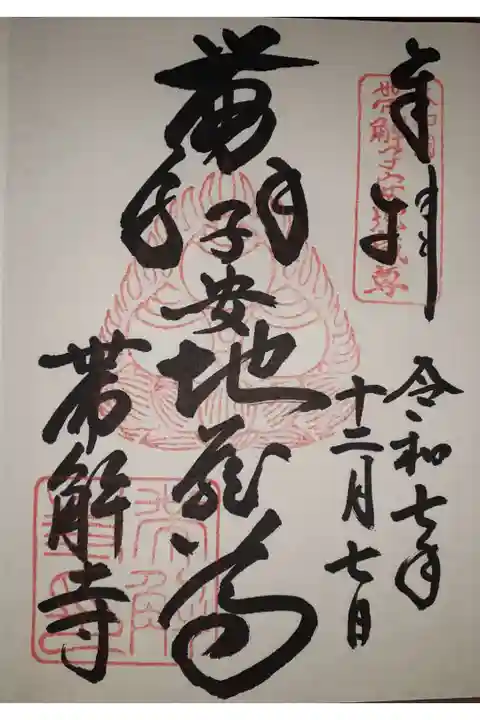 奉拝
令和七年
十二月七日
帯解子安地蔵尊
子安地蔵尊
帯解寺